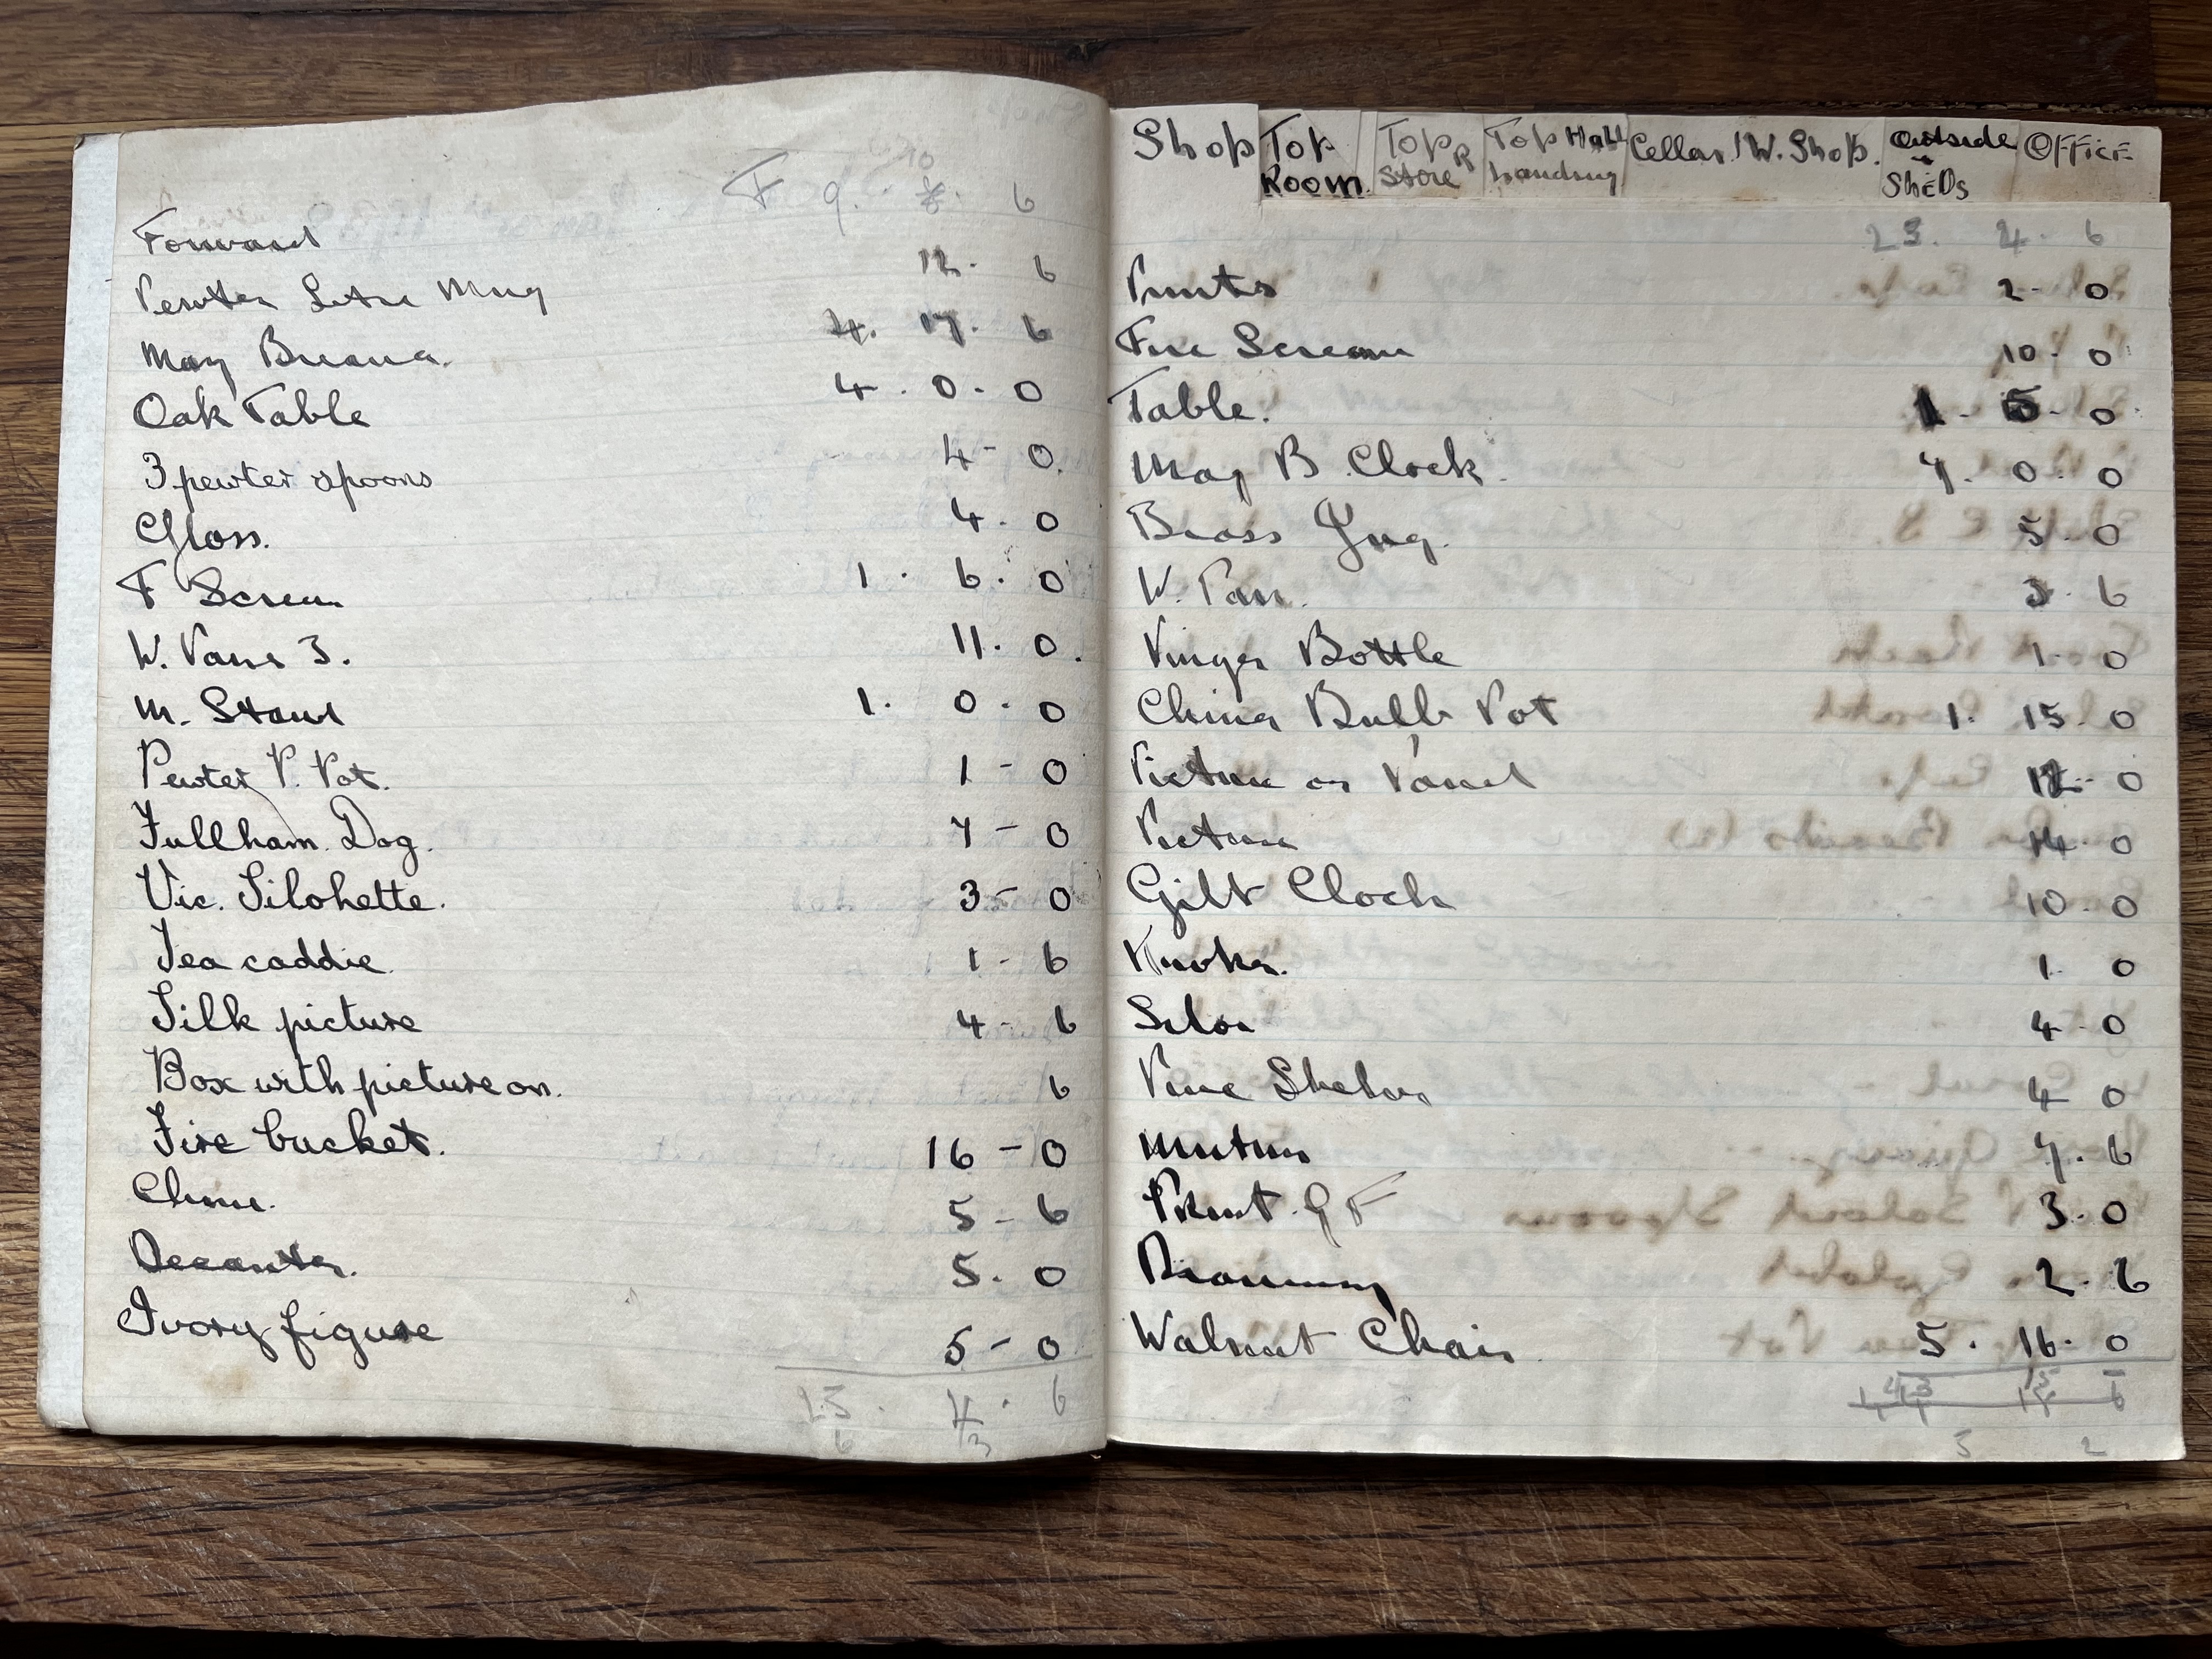 F 9. 10 6
Forward
Pewter Litre Mug 12. 6
May Bureau. 4. 17. 6
Oak Table 4. 0. 0
3 pewter spoons 4 - 0.
Glass. 4. 0
F Screen 1. 6. 0
W. Pans 3. 11. 0.
M. Stand 1. 0. 0
Pewter P. Pot. 1 - 0
Fullham Dog. 7 - 0
Vic. Silohette. 3 - 0
Tea caddie. 1 - 6
Silk picture 4 - 6
Box with picture on. 6
Fire bucket. 16 - 0
5 - 6
Decanter. 5. 0
Ivory figure 5 - 0
23. 4. 6
6 3
Shop
Top Room.
Top R Store
Top Hall Landing
Cellar.
W. Shop.
Outside Sheds
Office
23. 4. 6
Prints 2 - 0
Fire Screan 10. 0
Table. 1. 5. 0
May B. Clock. 7. 0. 0
Brass Jug. 5. 0
W. Pan. 3. 6
Vinger Bottle 1. 0
China Bulb Pot 1. 15. 0
Picture on Panel 12. 0
Picture 14. 0
Gilt Clock 10. 0
1. 0
4. 0
Pine Shelves 4 0
7. 6
Print. G F 3. 0
2. 6
Walnut Chair. 5. 16. 0
3 2